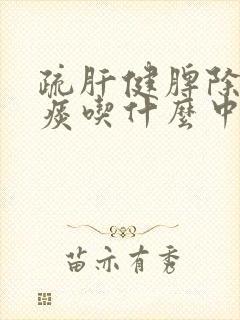 疏肝健脾除
痰喫什麼中
苗亦有秀